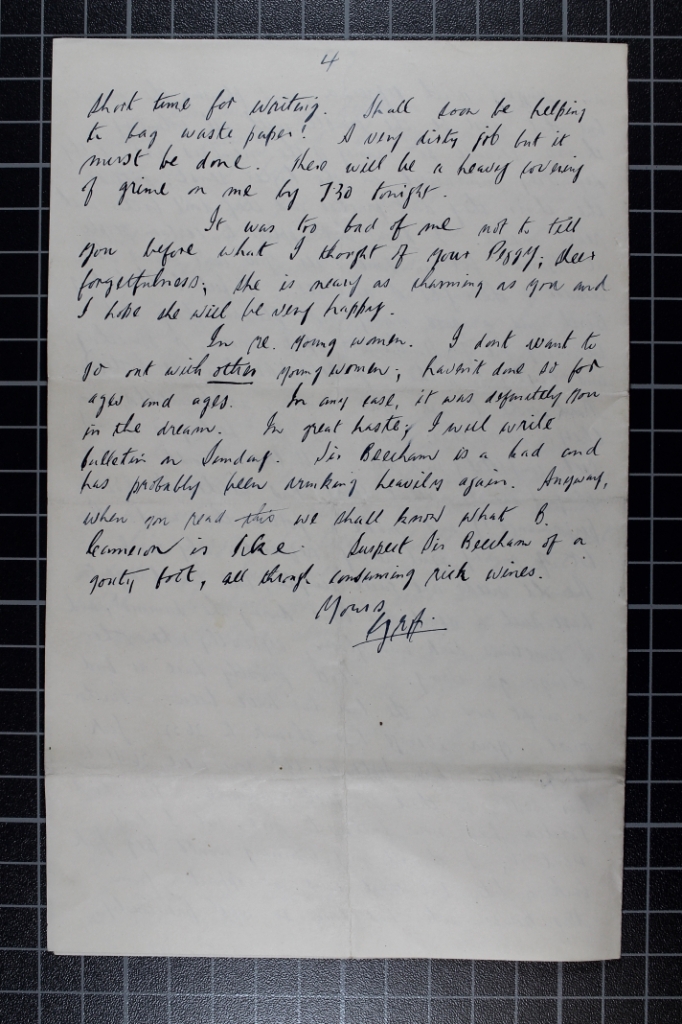 4
short time for writing. Shall soon be helping
to bag waste paper! A very dirty job but it
must be done. There will be a heavy covering
of grime on me by 730 tonight.
It was too bad of me not to tell
you before what I thought of your Peggy; sheer
forgetfulness; she is nearly as charming as you and
I hope she will be very happy.
In re. young women. I dont want to
go out with other young women; haven't done so for
ages and ages. In any case, it was definitely you
in the dream. In great haste; I will write
bulletin on Sunday. Sir Beecham is a bad and
has probably been drinking heavily again. Anyway,
when you read this we shall know what B.
Cameron is like. Suspect Sir Beecham of a
gouty foot, all through consuming rich wines.
Yours